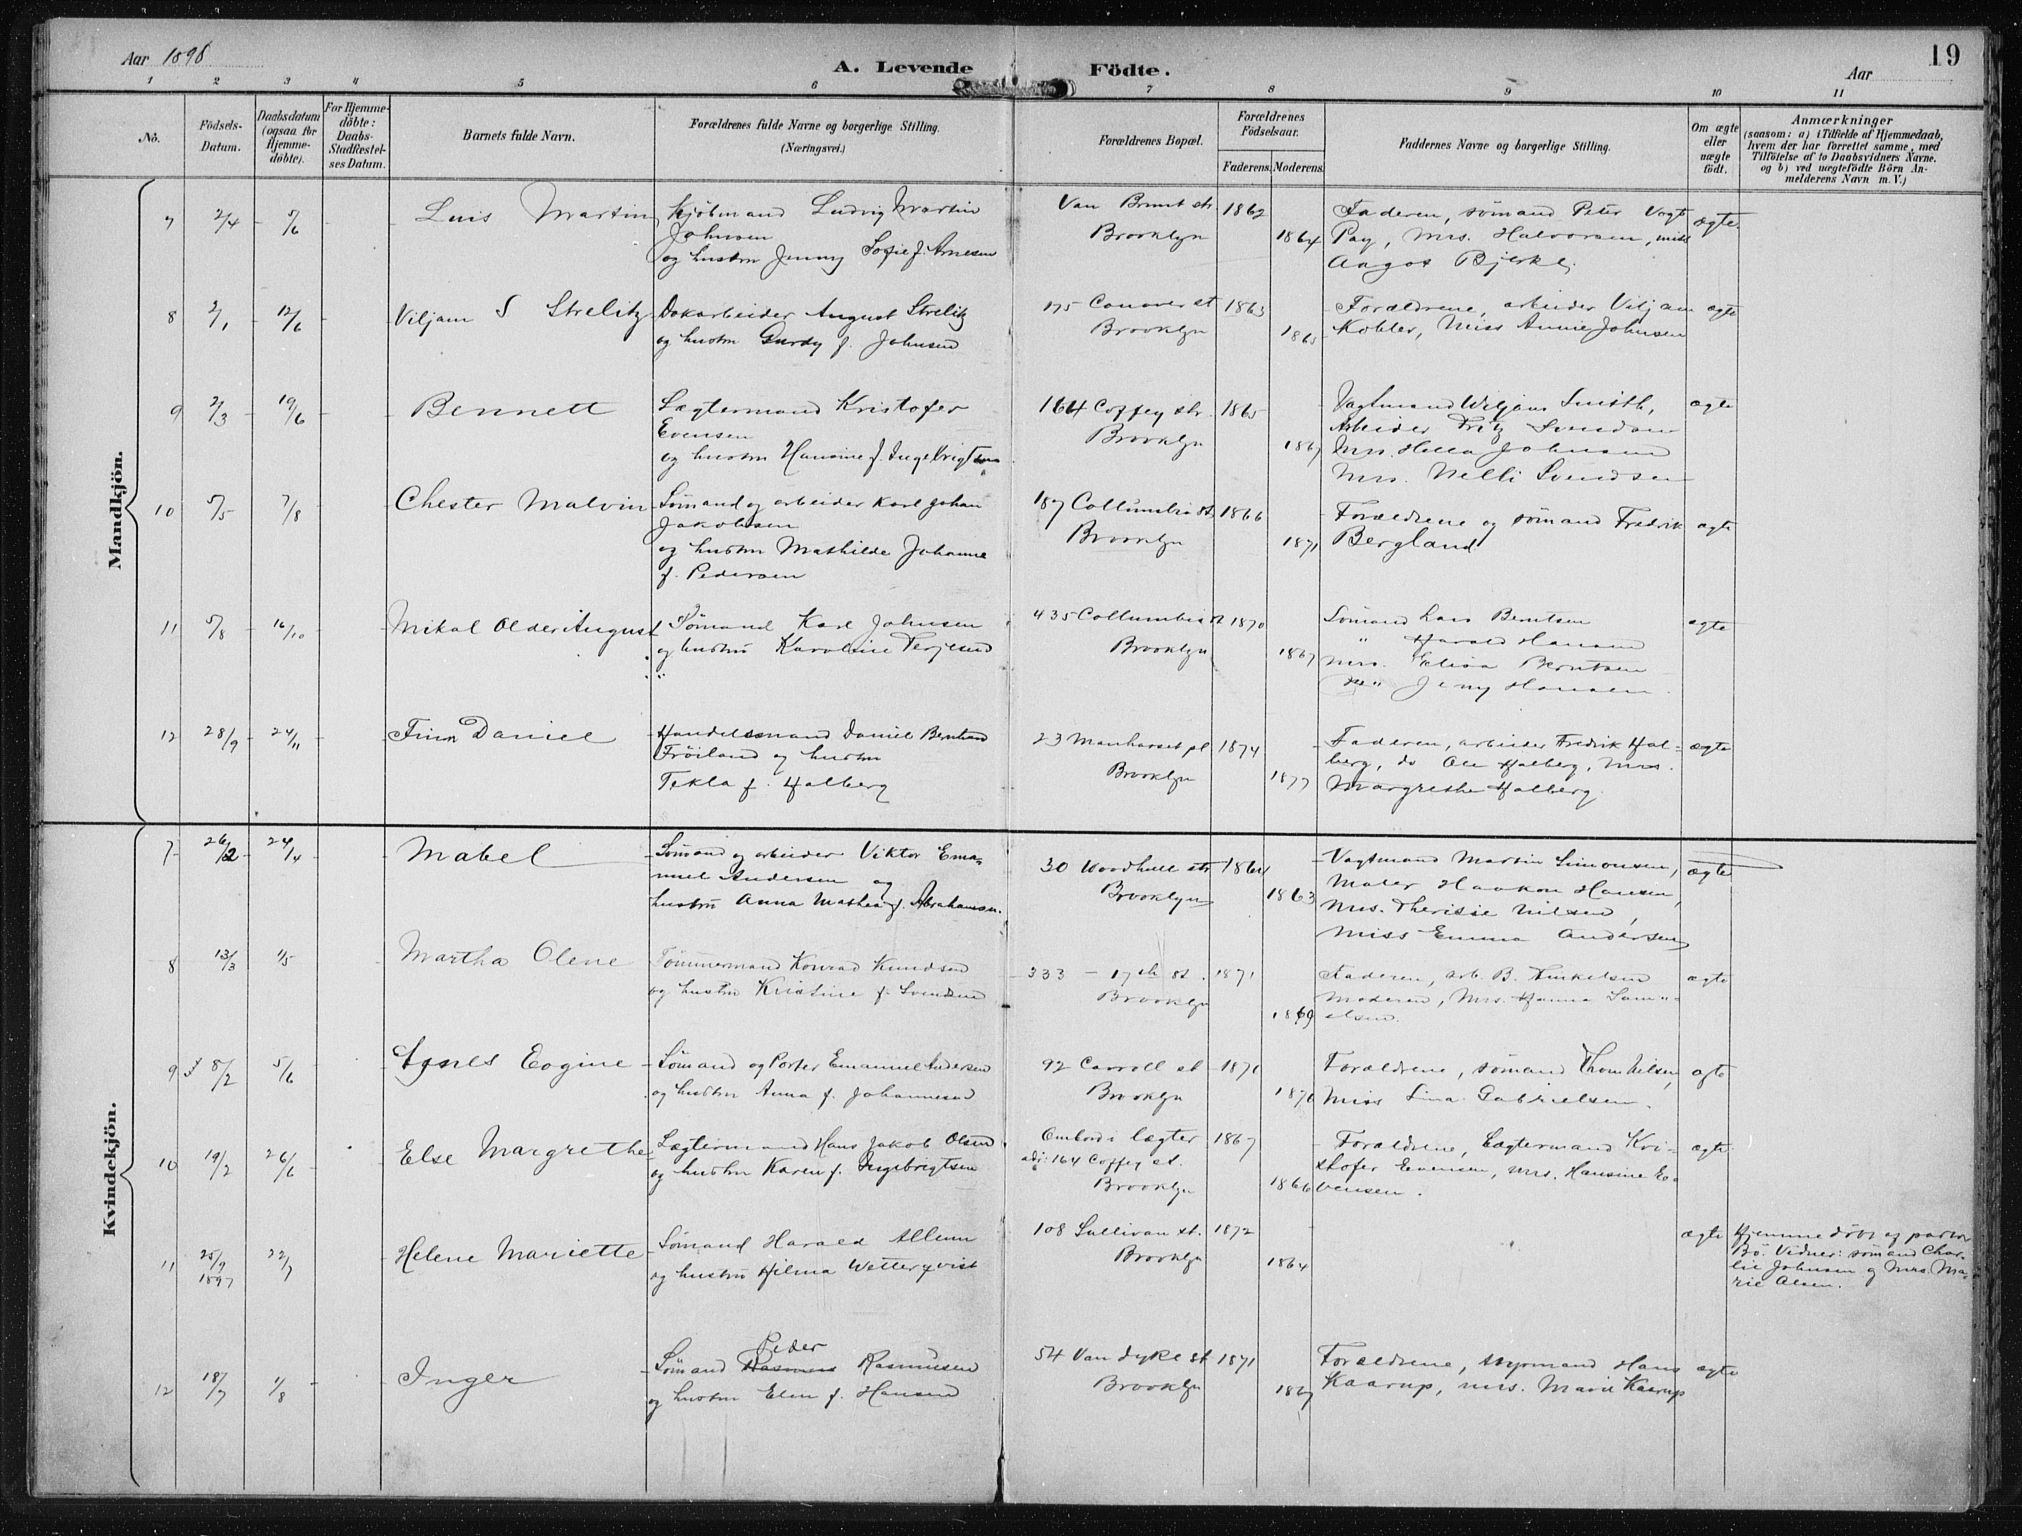 Aar 1898
A. Levende Födte.
Aar
19
1 2 3 4 5 6 7 8 9 10 11
No.
Födsels-Datum.
Daabsdatum (ogsaa for Hjemmedöbte).
For Hjemmedöbte: Daabs-Stadfæstelses Datum.
Barnets fulde Navn.
Forældrenes fulde Navne og borgerlige Stilling.
(Næringsvei.)
Forældrenes Bopæl.
Forældrenes Födselsaar.
Faderens. Moderens.
Faddernes Navne og borgerlige Stilling.
Om ægte eller uægte födt.
Anmærkninger
(saasom: a) i Tilfælde af Hjemmedaab,
hvem der har forrettet samme, med
Tilföielse af to Daabsvidners Navne.
og b) ved uægtefödte Börn An-
melderens Navn m. V.)
Mandkjön.
7 2/4 - 5/6 Luis Martin Kjöbmand Ludvig Martin
Johnsen
og hustru Jenny Sofie f. Arnesen
Van Brunt str.
Brooklyn
1862
1864
Faderen, sömand Peter Vogt
Pay, Mrs. Halvorsen, miss
Aagot Bjerke
ægte
8 2/1 - 12/6 Viljam S Strelitz Dokarbeider August Strelitz
og hustru Gurdy f. Johnsen
175 Conover st
Brooklyn
1863
1865
Forældrene, arbeider Viljam
Kohler, Miss Annie Johnsen
ægte
9 2/3 - 19/6 Bennett - Lægtermand Kristofer
Evensen
og hustru Hansine f. Ingebrigtsen
164 Coffey str.
Brooklyn
1865
1867
Vagtmand Wiljam Smith,
Arbeider Fritz Svendsen
Mrs. Helea Johnsen
Mrs. Nelli Svendsen
ægte
10 5/5 - 7/8 Chester Malvin - Sømand og arbeider Karl Johan
Jakobsen
og hustru Mathilde Johanne
f. Pedersen
187 Collumbia st
Brooklyn
1866
1871
Forældrene og sömand Fredrik
Bergland
ægte
11 5/8 - 16/10 Mikal Older August Sømand Karl Johnsen
og hustru Karoline Terjesen
435 Collumbia st
Brooklyn
1870
1867
Sømand Lars Berntsen
" Harald Hansen
Mrs. Elisa Berntsen
" Jenny Hansen
ægte
12 28/9 - 24/11 Finn Daniel - Handelsmand Daniel Berntsen
Fröiland og hustru
Tekla f. Halberg
23 Manhasset pl
Brooklyn
1874
1877
Faderen, arbeider Fredrik Hal-
berg, do Ole Halberg, Mrs.
Margrethe Halberg.
ægte
Kvindekjön.
7 26/2 - 24/4 Mabel - Sømand og arbeider Viktor Ema-
nuel Andersen og
hustru Anna Mathea f. Abrahamsen.
30 Woodhull str
Brooklyn
1864
1863
Vagtmand Martin Simonsen,
Maler Haakon Hansen,
Mrs. Therisie Nilsen,
Miss Emma Andersen
ægte
8 13/3 - 1/5 Martha Olene Tømmermand Konrad Knudsen
og hustru Kristine f. Svendsen
333 - 17th st.
Brooklyn
1871
1869
Faderen, arb. B. Mikelsen
Moderen, Mrs. Hanna Sam-
elsen.
ægte
9 8/2 - 5/6 Agnes Eogine - Sømand og Porter Emanuel Andersen
og hustru Anna f. Johannesen
92 Carroll st
Brooklyn
1871
1876
Forældrene, sømand Thom Nilsen,
Miss Lina Gabrielsen.
ægte
10 19/2 - 26/6 Else Margrethe Lægtermand Hans Jakob Olsen
og hustru Karen f. Ingebrigtsen
Ombord i lægter
adr: 164 Coffey st.
Brooklyn
1867
1866
Forældrene, Lægtermand Kri-
stofer Evensen, Mrs. Hansine E-
vensen.
ægte
11 25/9 1897 22/7 - Helene Mariette - Sømand Harald Allum
og hustru Hilma Wetterqvist
108 Sullivan st.
Brooklyn
1872
1864
ægte Hjemme døbt af pastor
Bö. Vidner: sømand Char-
lie Johnsen og Mrs. Ma-
rie Olsen.
12 18/7 - 1/8 - Inger - Sømand Rasmus Peder Rasmusen
og hustru Elen f. Hansen
54 Van Dyke st
Brooklyn
1871
1867
Forældrene, styrmand Hans
Kaarup, Mrs. Marie Kaarup
ægte